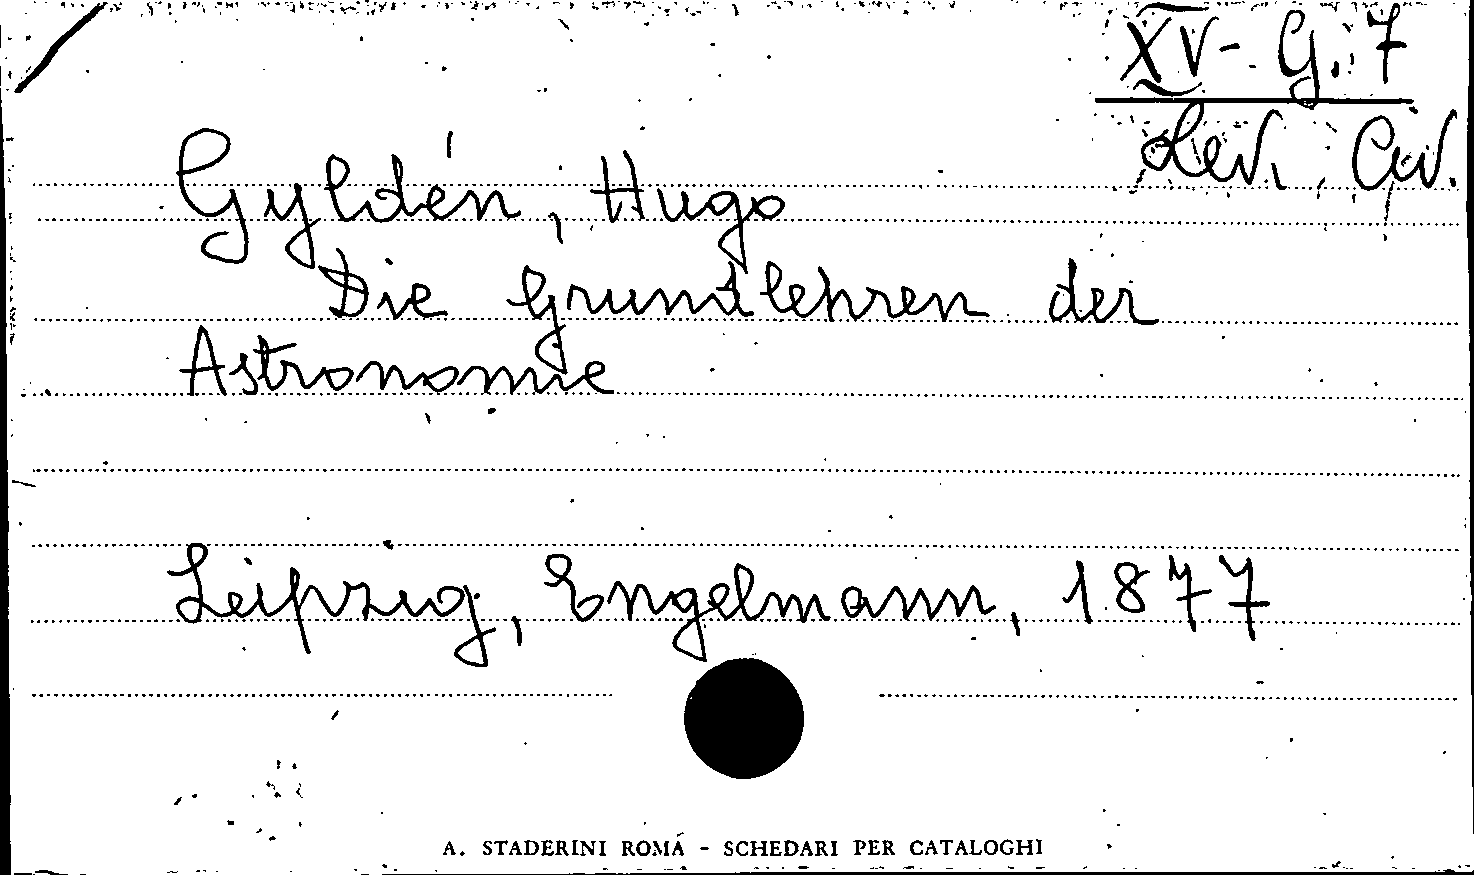 XV- G. 7
Lev. Civ.
Gyldén, Hugo
Die Grundlehren der
Astronomie
Leipzig, Engelmann, 1877
A. STADERINI ROMA - SCHEDARI PER CATALOGHI